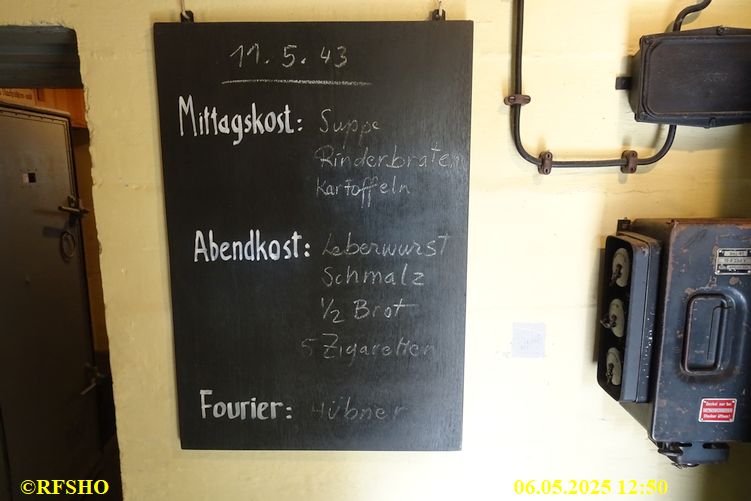 11.5.43
Mittagskost: Suppe
Rinderbraten
Kartoffeln
Abendkost: Leberwurst
Schmalz
1/2 Brot
5 Zigaretten
Fourier: Hübner
©RFSHO
06.05.2025 12:50